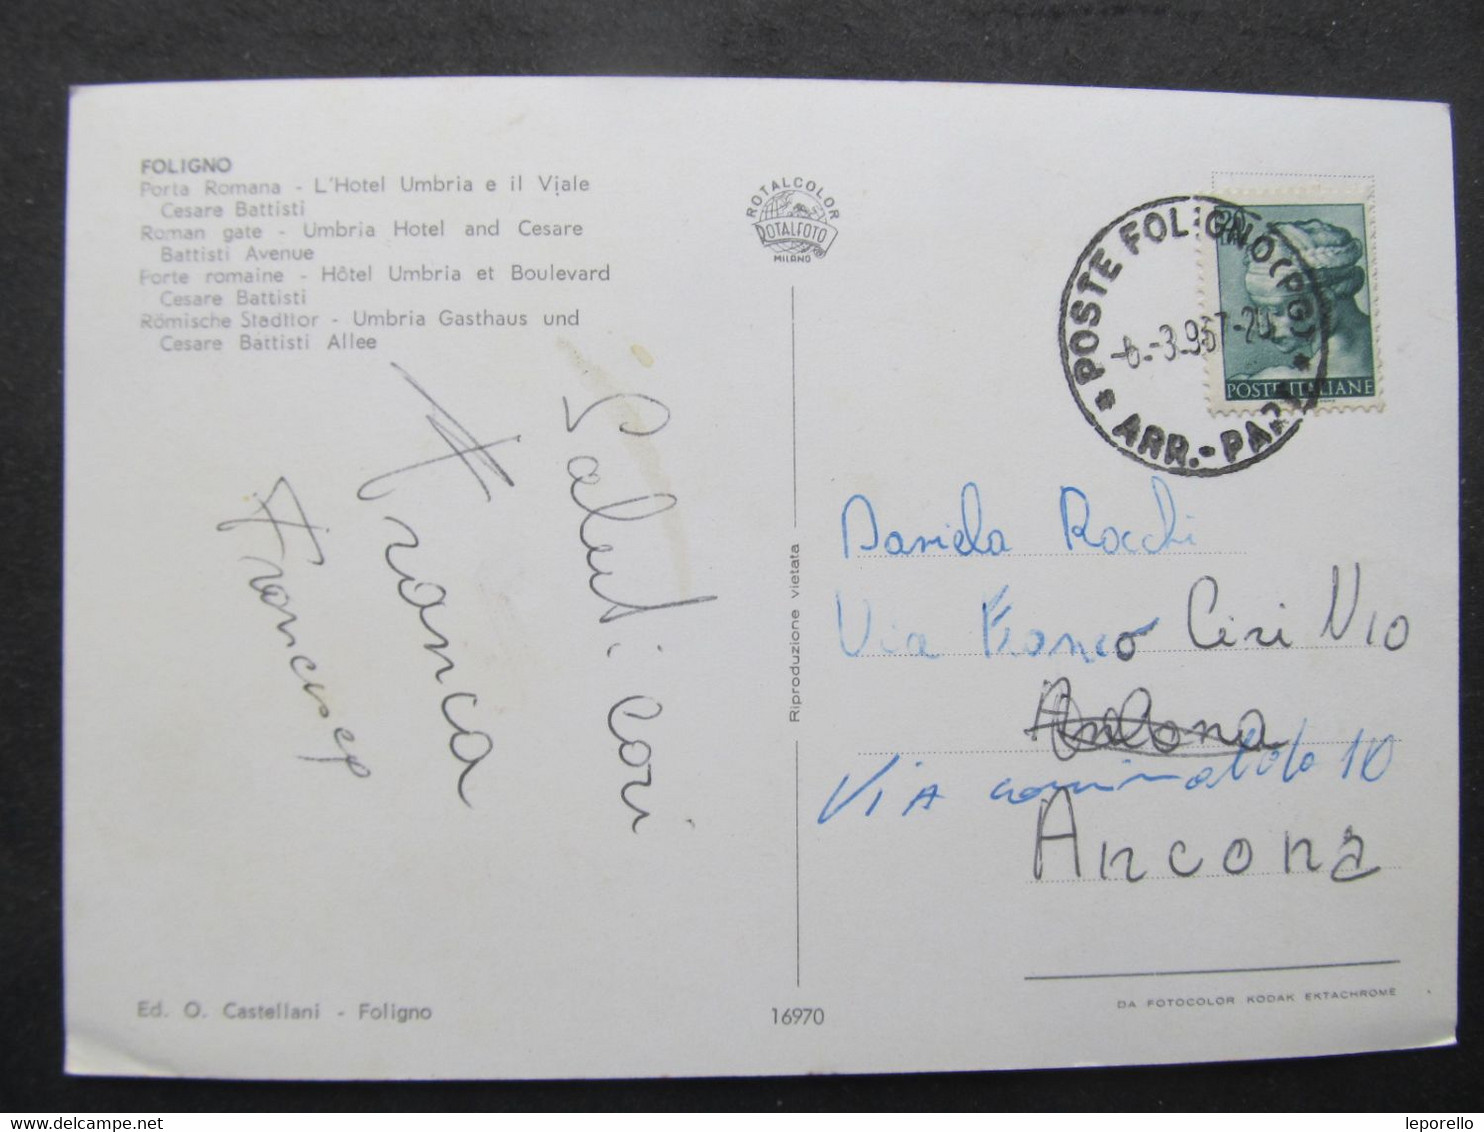 FOLIGNO
Porta Romana - L'Hotel Umbria e il Viale
Cesare Battisti
Roman gate - Umbria Hotel and Cesare
Battisti Avenue
Porte romaine - Hôtel Umbria et Boulevard
Cesare Battisti
Römische Stadttor - Umbria Gasthaus und
Cesare Battisti Allee
Saluti cari
Franca
Ed. O. Castellani - Foligno
ROTALCOLOR
ROTALFOTO
MILANO
Riproduzione vietata
16970
POSTE FOLIGNO (PG)
ARR.-PAR
POSTE ITALIANE
Daniela Rocchi
Via Franco Ciri N10
Via 10
Ancona
DA FOTOCOLOR KODAK EKTACHROME
leporello